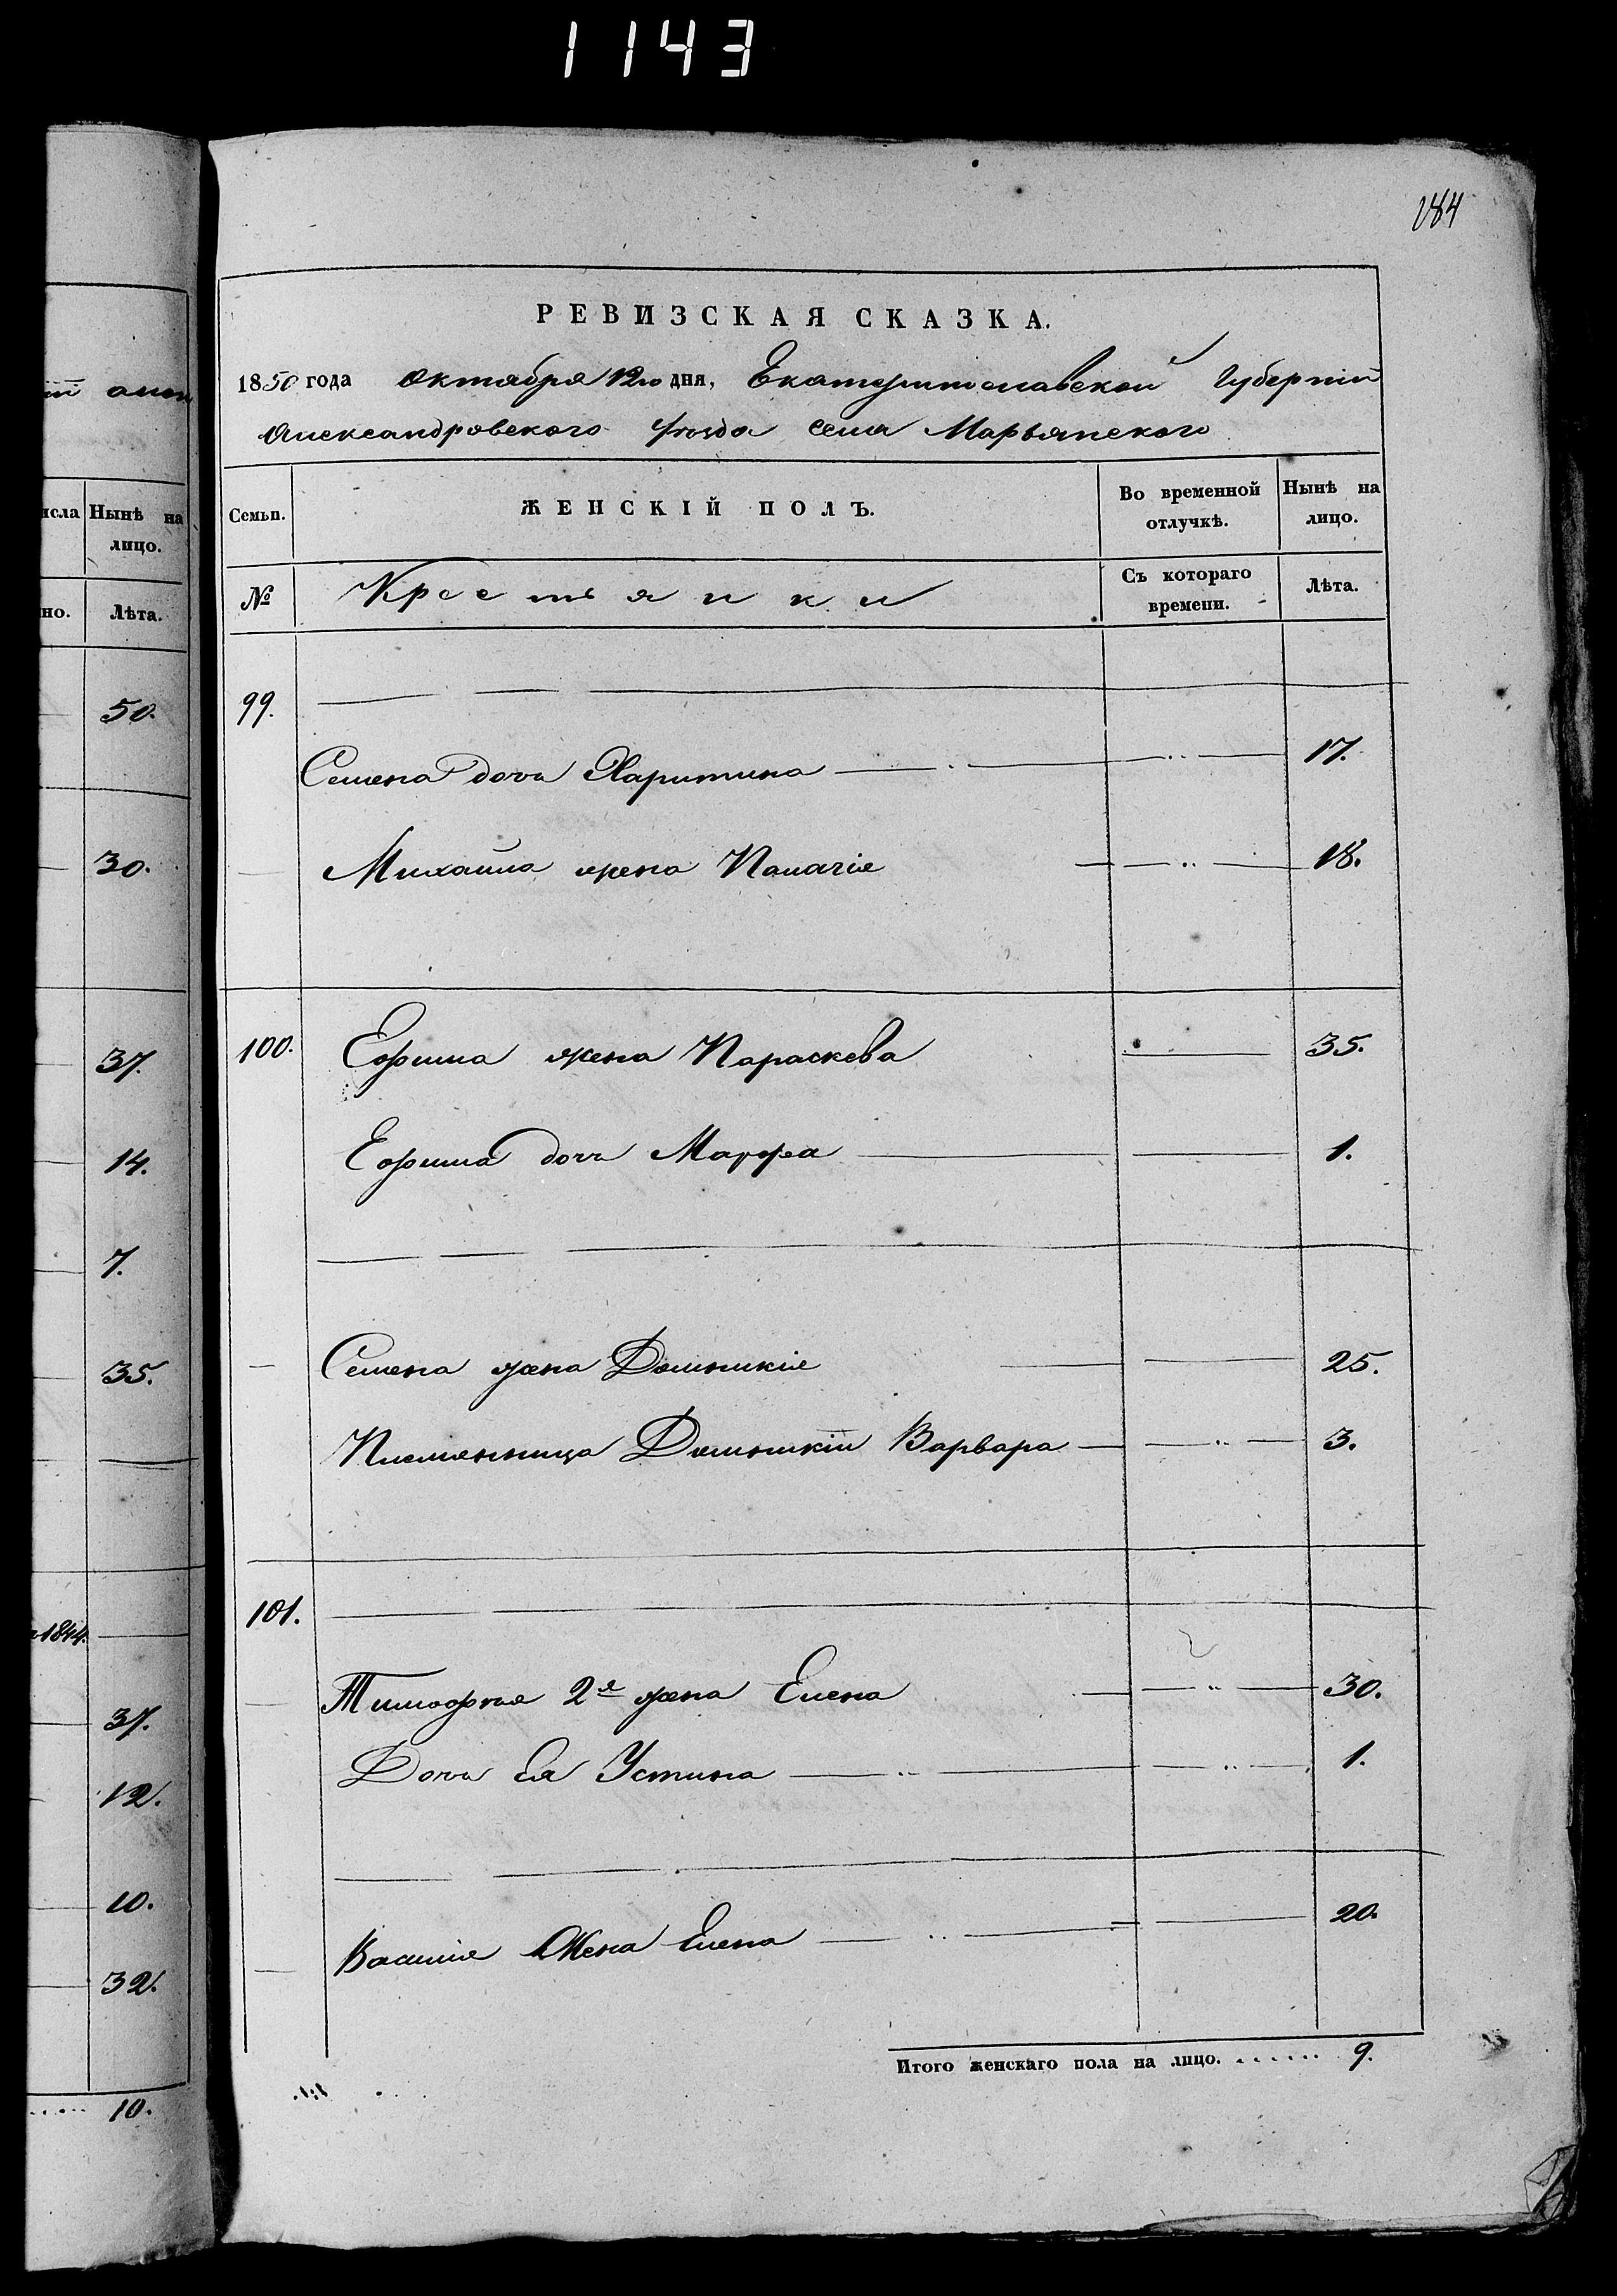 1143
184
РЕВИЗСКАЯ СКАЗКА.
1850 года Октября 12го дня, Екатеринославской Губерніи
Александровского уѣзда села Марьянского
Семьи. ЖЕНСКІЙ ПОЛЪ. Во временной отлучкѣ. Нынѣ на лицо.
№ Крестьянки Съ котораго времени. Лѣта.
99.
Семена дочь Харитина 17.
Михайла жена Палагія 18.
100. Ефима жена Параскева 35.
Ефима дочь Марфа 1.
Семена жена Домникія 25.
Племянница Домникіи Варвара 3.
101.
Тимофѣя 2я жена Елена 30.
Дочь ея Устина 1.
Василія Жена Елена 20.
Итого женскаго пола на лицо. . . . . . . 9.
Нынѣ на лицо.
Лѣта.
50.
30.
37.
14.
7.
35.
1844.
37.
12.
10.
32.
10.